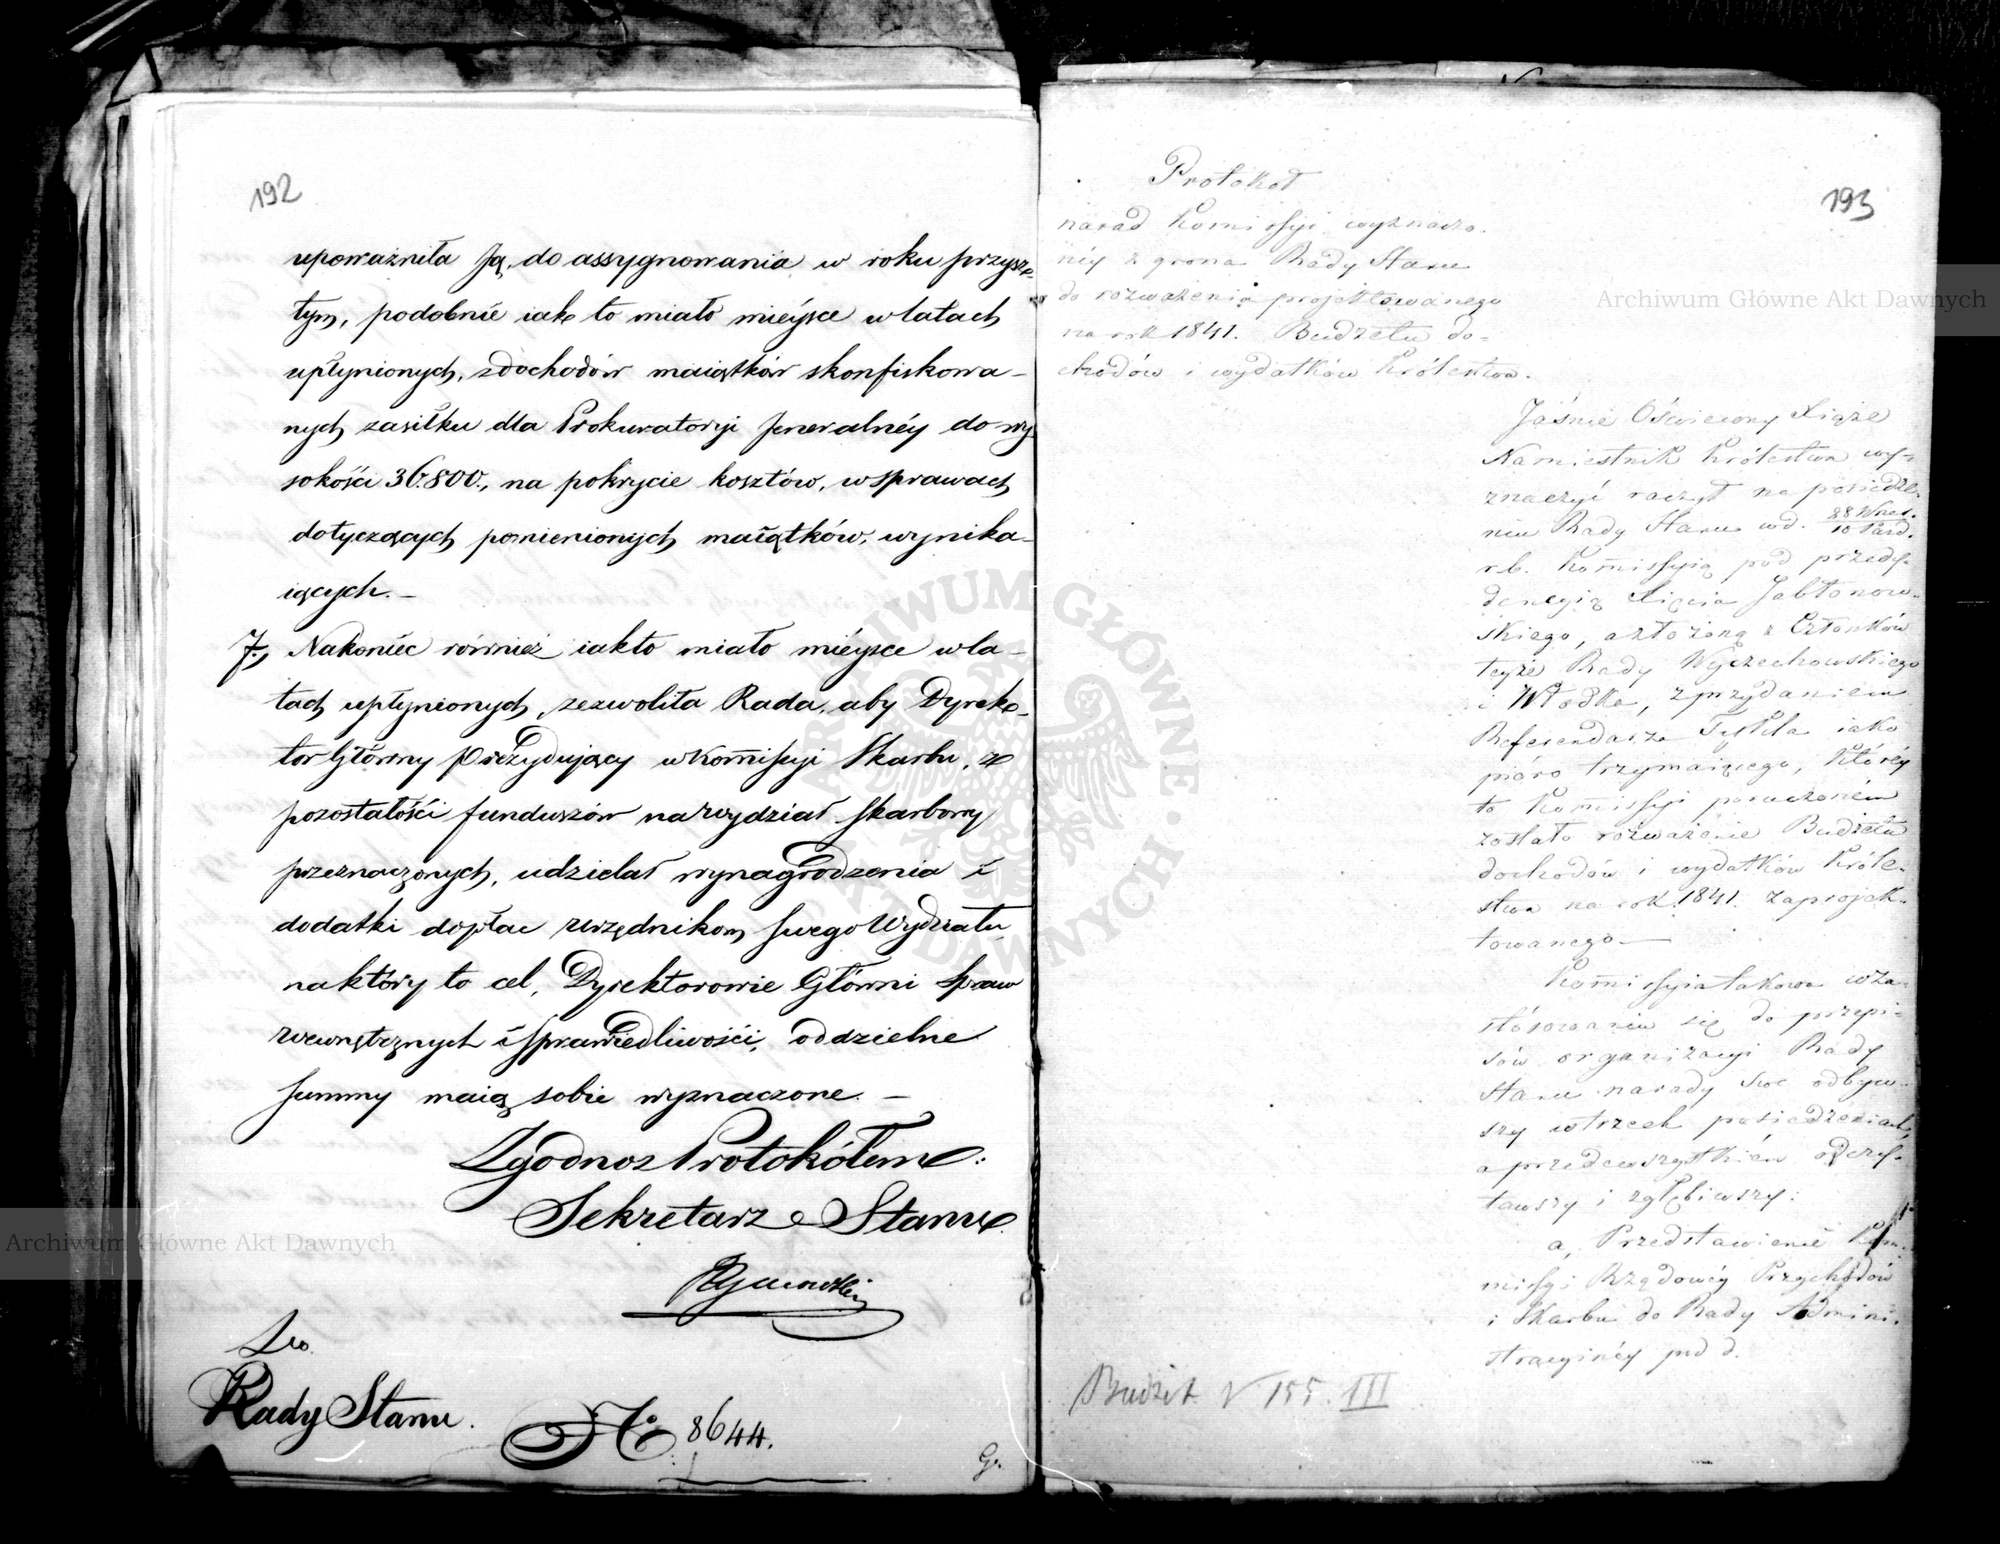 192
upoważniła Ją, do assygnowania w roku przysz-
łym, podobnie iak to miało mieysce w latach
upłynionych, z dochodów maiątków skonfiskowa-
nych zasiłku dla Prokuratoryi Jeneralnéy do wy
sokości 36.800., na pokrycie kosztów, w sprawach
dotyczących pomienionych maiątków, wynika-
iących. -
7., Nakoniec również iak to miało mieysce w la-
tach upłynionych, zezwoliła Rada, aby Dyrek-
tor Główny Prezydujący w Kommissyi Skarbu, z
pozostałości funduszów na wydział skarbowy
przeznaczonych, udzielał wynagrodzenia i
dodatki do płac urzędnikom swego Wydziału
na który to cel, Dyrektorowie Główni Spraw
wewnętrznych i Sprawiedliwości, oddzielne
summy maią sobie wyznaczone. -
Zgodno z Protokółem:
Sekretarz Stanu
Do
Rady Stanu.
No 8644.
193
Protokoł
narad Kommissyi wyznaczo-
néy z grona Rady Stanu
do rozważenia projektowanego
na rok 1841. Budżetu do-
chodów i wydatków Królestwa.
Jaśnie Oświecony Xiąże
Namiestnik Królestwa wy-
znaczyć raczył na posiedze-
niu Rady Stanu w d. 28 Wrześ. / 10 Paźd.
r.b. Kommissyią pod prezy-
dencyią Xięcia Jabłonow-
skiego, a złożoną z Członków
teyże Rady Wyczechowskiego
i Włodka, z przydaniem
Referendarza jako
pióro trzymaiącego, któréy
to Kommissyi poruczoném
zostało rozważenie Budżetu
dochodów i wydatków Króle-
stwa na rok 1841. zaprojek-
towanego. —
Kommissyia takowa w za-
stósowaniu się do przepi-
sów organizacyi Rady
Stanu narady swe odbyw-
szy w trzech posiedzeniach,
a przedewszystkiém odczy-
tawszy i zgłębiwszy:
a, Przedstawienie Kom-
missyi Rządowéy Przychodów
i Skarbu do Rady Admini-
stracyinéy pod d.
Budżet N 155. III
Archiwum Główne Akt Dawnych
Archiwum Główne Akt Dawnych
ARCHIWUM GŁÓWNE · AKT DAWNYCH ·